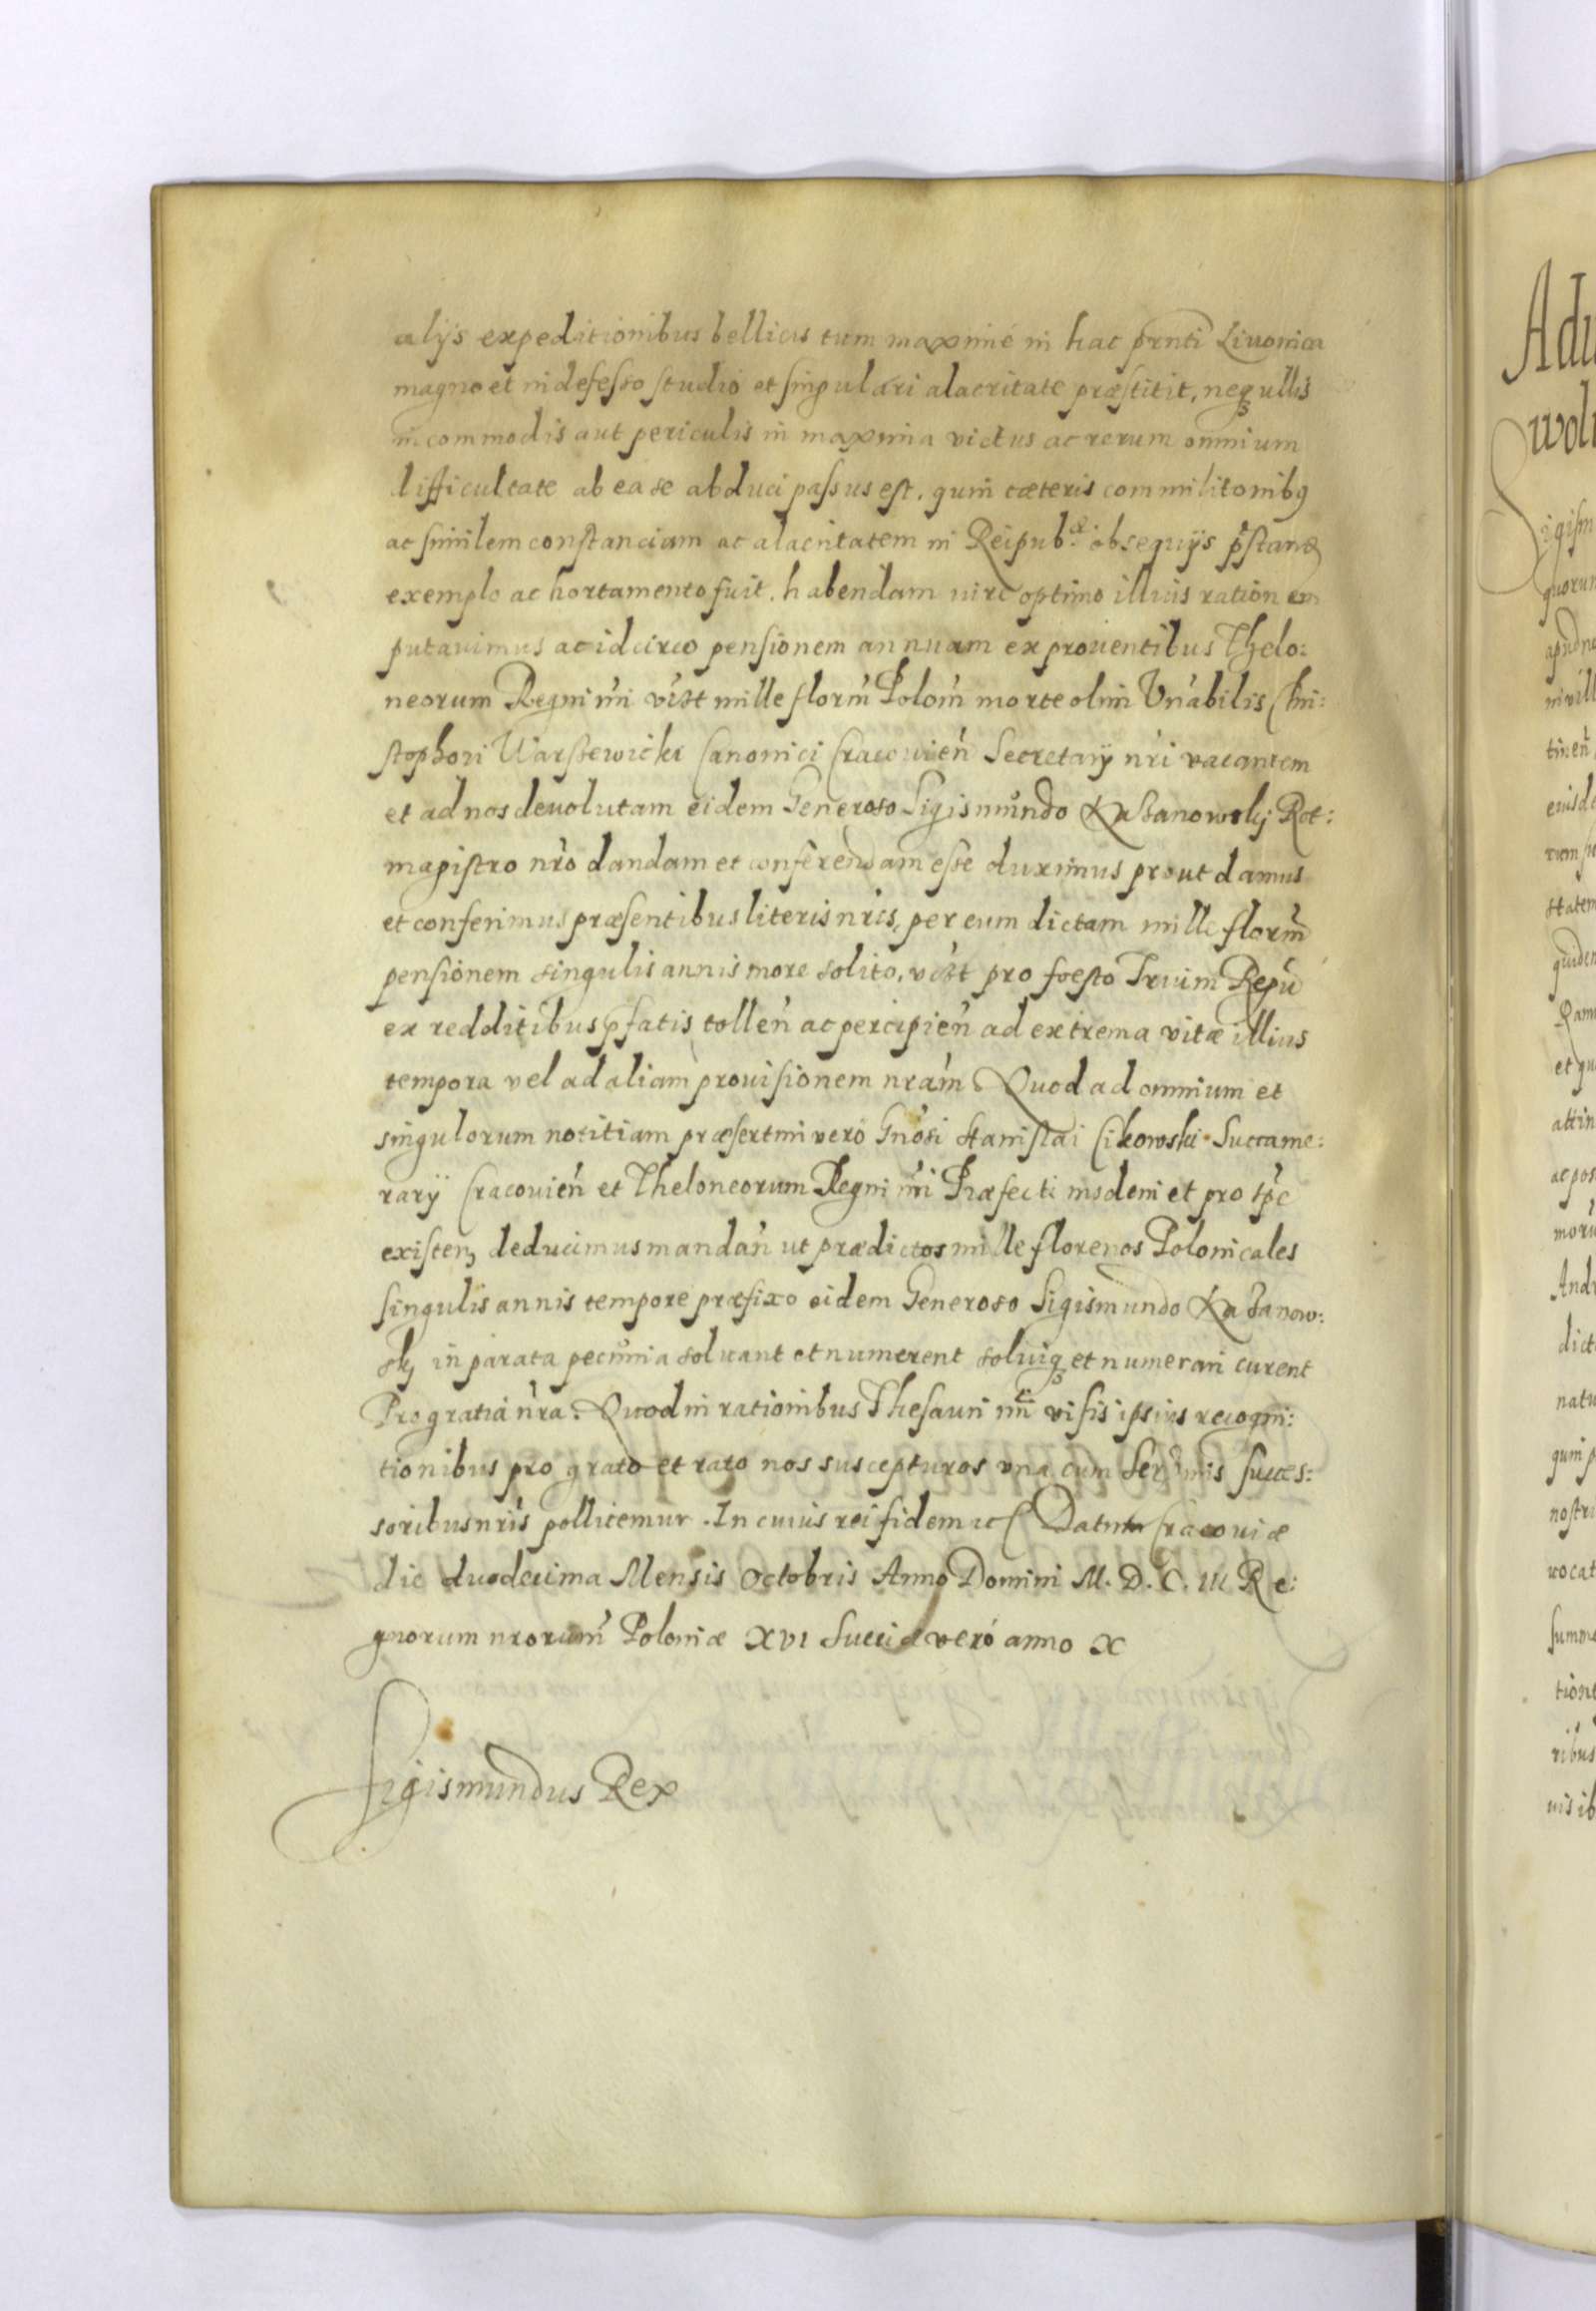 alijs expeditionibus bellicis tum maximé in hac prnti Liuonica
magno et indefesso studio et singulari alacritate præstitit, neqȝ ullis
incommodis aut periculis in maxima victus ac rerum omnium
difficultate ab ea se abduci passus est, quin cæteris commilitonibꝯ
ac similem constanciam ac alacritatem in Reipubæ obsequijs pstand
exemplo ac hortamento fuit, habendam uiro optimo illius rationem
putauimus ac idcirco pensionem annuam ex prouentibus Thelo:
neorum Regni nri vizt mille florm Polom morte olim Vnabilis Chri:
stophori Warssewicki Canonici Cracouien Secretarij nri vacantem
et ad nos deuolutam eidem Generoso Sigismundo Kazanowsky Rot:
magistro nro dandam et conferendam esse duximus prout damus
et conferimus præsentibus literis nris, per eum dictam mille florm
pensionem singulis annis more solito, vizt pro foesto Trium Regū
ex redditibus pfatis tollen ac percipien ad extrema vitæ illius
tempora vel ad aliam prouisionem nram. Quod ad omnium et
singulorum notitiam præsertim vero Gnosi Stanislai Cikowski Succame:
rarij Cracouien et Theloneorum Regni nri Præfecti modemi et pro tpe
existen, deducimus mandan ut prædictos mille florenos Polonicales
singulis annis tempore præfixo eidem Generoso Sigismundo Kazanow:
sky in parata pecunia soluant et numerent soluiqȝ et numerari curent
Pro gratia nra. Quod in rationibus Thesauri nri visis ipsius recogni:
tionibus pro grato et rato nos suscepturos vna cum Serenmis succes:
soribus nris pollicemur. In cuius rei fidem etc Datum Cracouiæ
die duodecima Mensis Octobris Anno Domini M. D. C. III Re:
gnorum nrorum Poloniæ XVI Sueciæ veró anno X
Sigismundus Rex